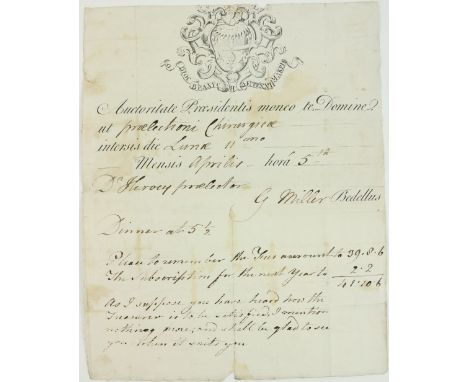 Auctoritate Præsidentis moneo te Domine
ut prælectioni Chirurgicæ
intersis die Lunæ 11mo
Mensis Aprilis horâ 5th
Dr Hervey prælector
G Miller Bedellus
Dinner at 5 1/2
Please to remember the Fees amount to 39.8.6
The Subscription for the next Year to 2.2
41.10.6
As I suppose you have heard how the
Treasurer is to be satisfied, I mention
nothing more, and shall be glad to see
you when it suits you